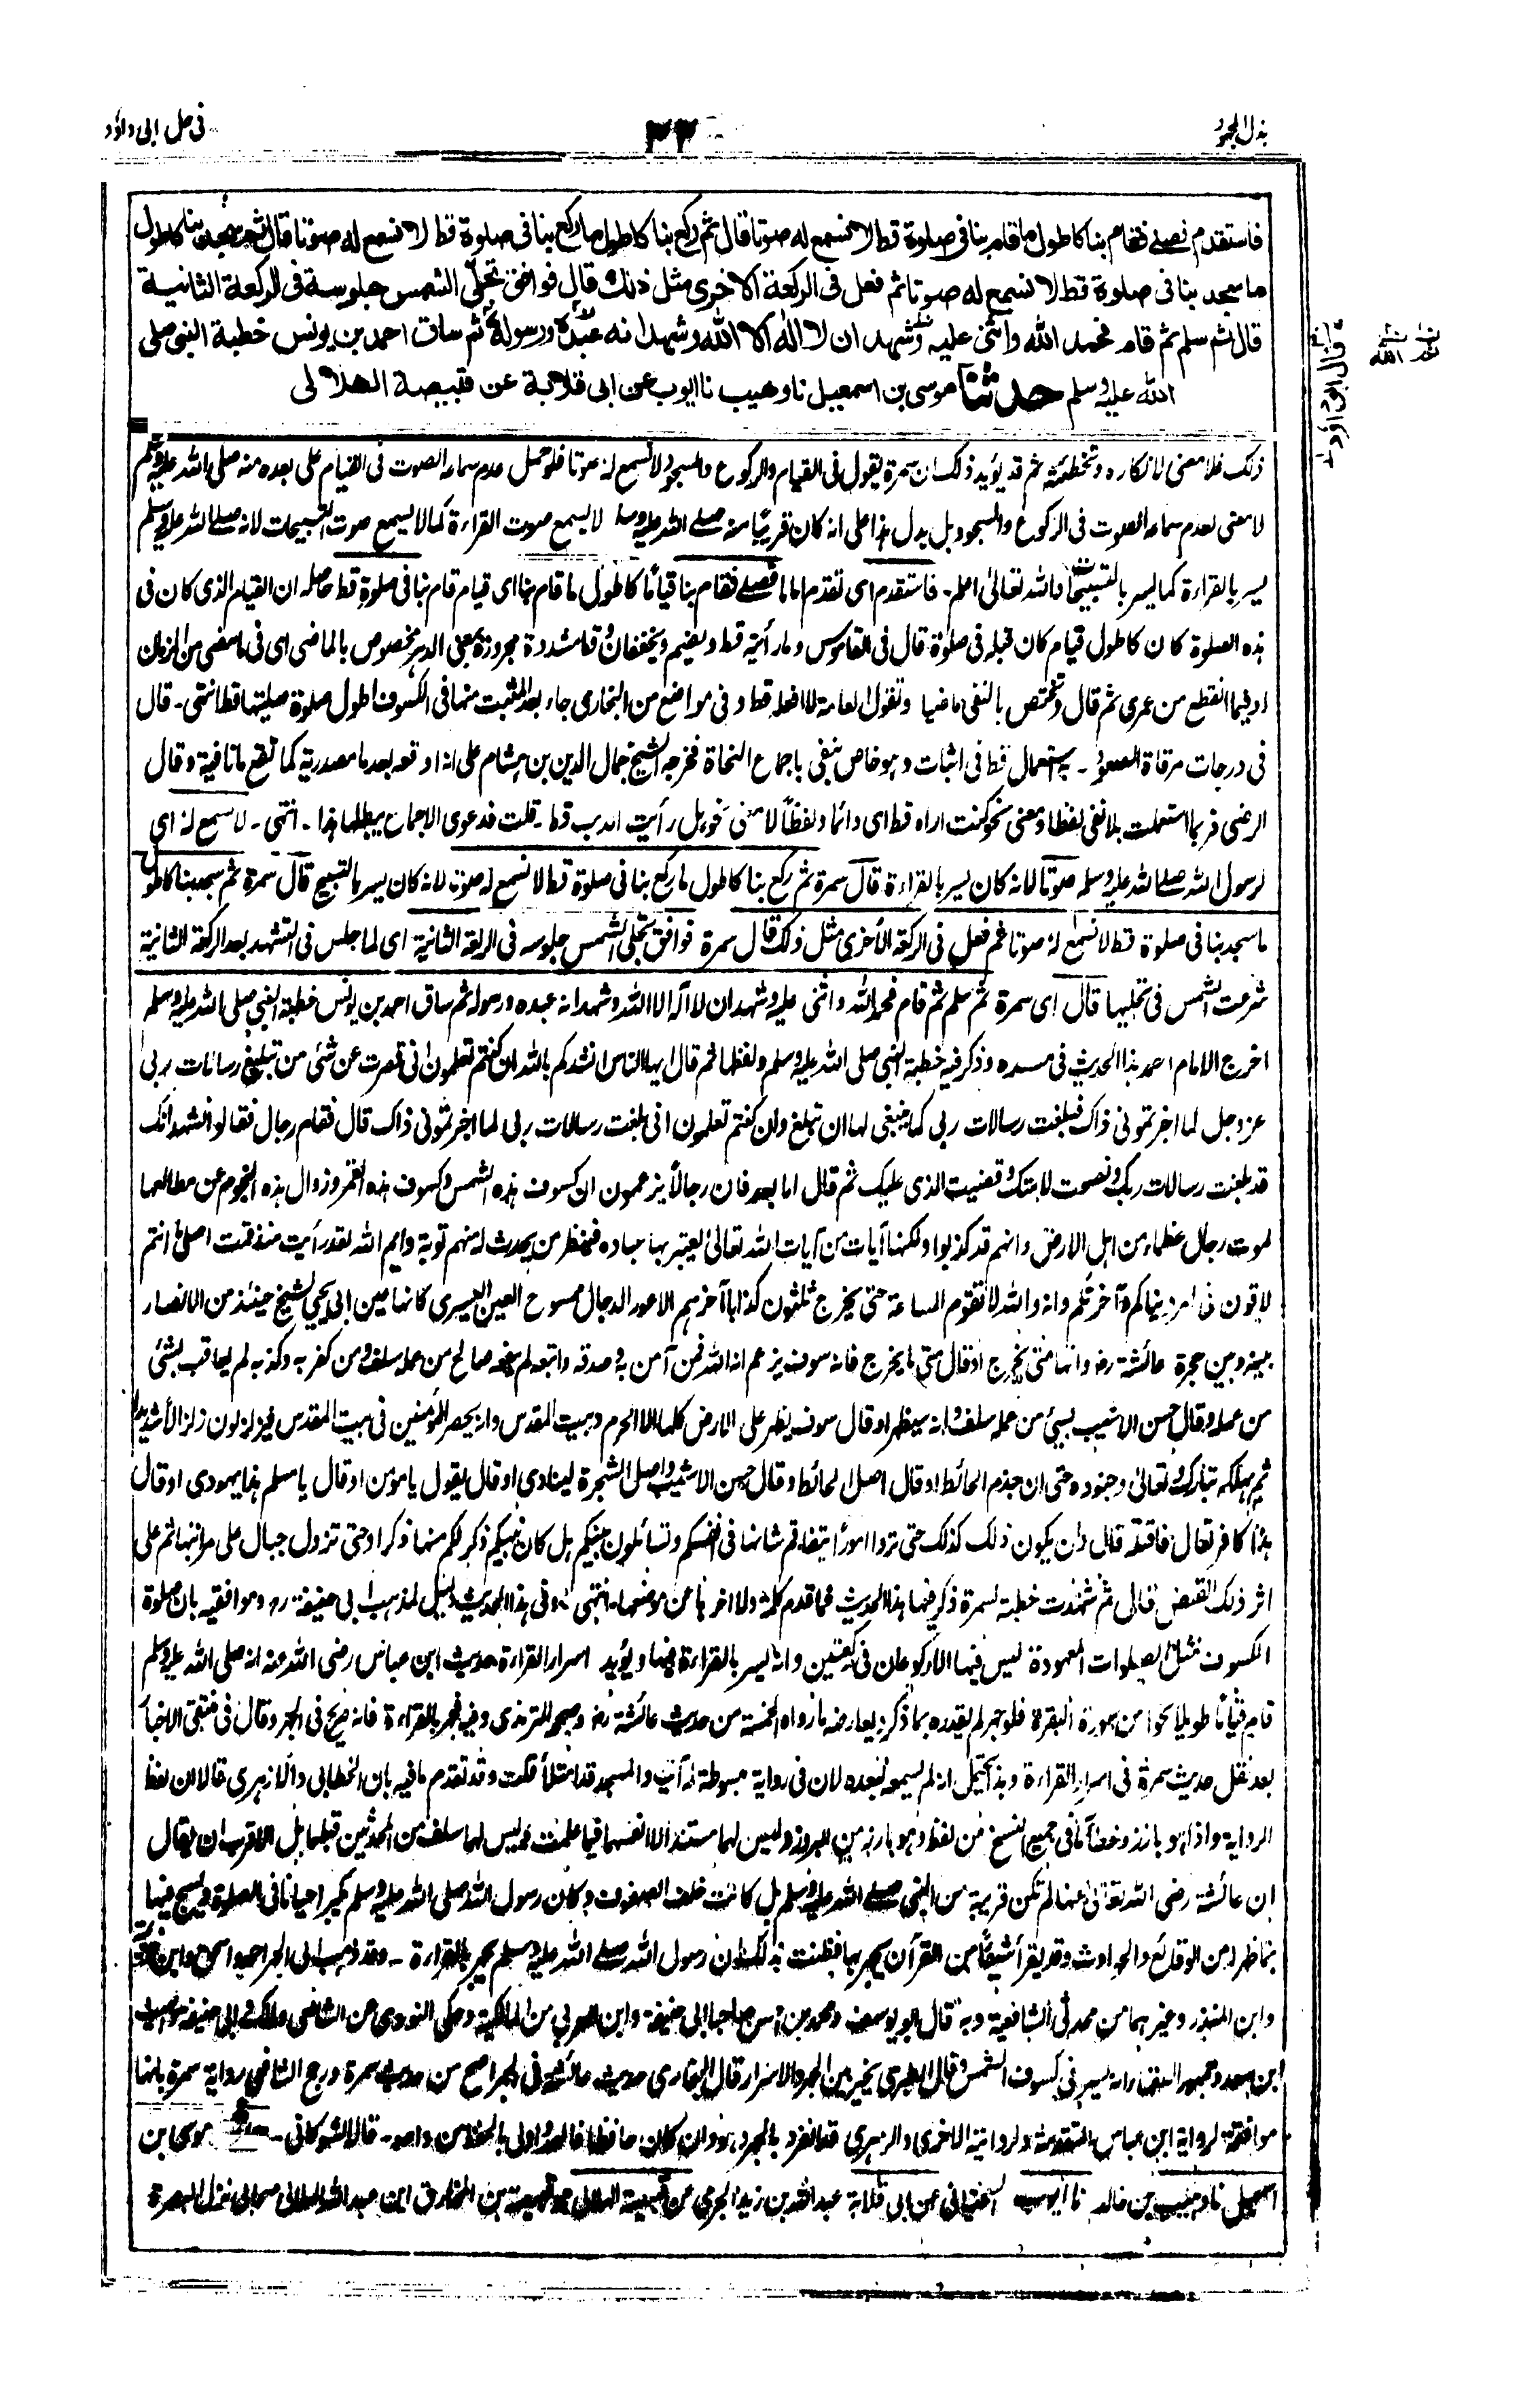 بذل المجهود
٢٢
فى حل ابى داؤد
فاستقدم فصلى فقام بنا كاطول ما قام بنا فى صلوة قط لا نسمع له صوتا قال ثم ركع بنا كاطول ما ركع بنا فى صلوة قط لا نسمع له صوتا قال ثم سجد بنا كاطول
ما سجد بنا فى صلوة قط لا نسمع له صوتا ثم فعل فى الركعة الاخرى مثل ذلك قال فوافق تجلى الشمس جلوسه فى الركعة الثانية
قال ثم سلم ثم قام فحمد الله واثنى عليه وشهد ان لا اله الا الله وشهد انه عبده ورسوله ثم ساق احمد بن يونس خطبة النبى صلى
الله عليه وسلم حدثنا موسى بن اسمعيل نا وهيب نا ايوب عن ابى قلابة عن قبيصة الهلالى
قال ابو داؤد
ذلك فلا معنى لانكاره وتخطئته ثم قد يؤيد ذلك ان سمرة يقول فى القيام والركوع والسجود لا نسمع له صوتا فلو حمل عدم سماع الصوت فى القيام على بعده منه صلى الله عليه وسلم
لا معنى لعدم سماع الصوت فى الركوع والسجود بل يدل هذا على انه كان قريبا منه صلى الله عليه وسلم لا يسمع صوت القراءة كما لا يسمع صوت التسبيحات لانه صلى الله عليه وسلم
يسر بالقراءة كما يسر بالتسبيحات والله تعالىٰ اعلم۔ فاستقدم اى تقدم اماما فصلى فقام بنا قياما كاطول ما قام بنا اى قيام قام بنا فى صلوة قط حاصله ان القيام الذى كان فى
هذه الصلوة كان كاطول قيام كان قبله فى صلوة۔ قال فى القاموس وما رأيته قط ويضم ويخففان وقط مشددة مجرورة بمعنى الدهر مخصوص بالماضى اى فى ما مضى من الزمان
او فيما انقطع من عمرى ثم قال وتختص بالنفى ماضيا وتقول العامة لا افعله قط وفى مواضع من البخارى جاء بعد المثبت منها فى الكسوف اطول صلوة صليتها قط انتهى۔ قال
فى درجات مرقاة الصعود۔ استعمال قط فى اثبات وهو خاص بنفى باجماع النحاة فخرجه الشيخ جمال الدين بن هشام على انه اوقعه بعد ما مصدرية كما تقع ما نافية وقال
الرضى فربما استعملت بلا نفى لفظا ومعنى نحو كنت اراه قط اى دائما ولفظا لا معنى نحو هل رأيت الذئب قط۔ قلت فدعوى الاجماع يبطلها هذا۔ انتهى۔ لا نسمع له اى
لرسول الله صلى الله عليه وسلم صوتا لانه كان يسر بالقراءة۔ قال سمرة ثم ركع بنا كاطول ما ركع بنا فى صلوة قط لا نسمع له صوتا لانه كان يسر بالتسبيح قال سمرة ثم سجد بنا كاطول
ما سجد بنا فى صلوة قط لا نسمع له صوتا ثم فعل فى الركعة الأخرى مثل ذلك قال سمرة فوافق تجلى الشمس جلوسه فى الركعة الثانية اى لما جلس فى التشهد بعد الركعة الثانية
شرعت الشمس فى تجليها قال اى سمرة ثم سلم ثم قام فحمد الله واثنى عليه وشهد ان لا اله الا الله وشهد انه عبده ورسوله ثم ساق احمد بن يونس خطبة النبى صلى الله عليه وسلم
اخرج الامام احمد هذا الحديث فى مسنده وذكر فيه خطبة النبى صلى الله عليه وسلم ولفظها ثم قال ايها الناس انشدكم بالله ان كنتم تعلمون انى قصرت عن شئ من تبليغ رسالات ربى
عز وجل لما اخبرتمونى ذاك فبلغت رسالات ربى كما ينبغى لها ان تبلغ وان كنتم تعلمون انى بلغت رسالات ربى لما اخبرتمونى ذاك قال فقام رجال فقالوا نشهد انك
قد بلغت رسالات ربك ونصحت لامتك وقضيت الذى عليك ثم قال اما بعد فان رجالا يزعمون ان كسوف هذه الشمس وكسوف هذه القمر وزوال هذه النجوم عن مطالعها
لموت رجال عظماء من اهل الارض وانهم قد كذبوا ولكنها آيات من آيات الله تعالىٰ يعتبر بها عباده فينظر من يحدث له منهم توبة وايم الله لقد رأيت منذ قمت اصلى ما انتم
لاقون فى امر دنياكم وآخرتكم وانه والله لا تقوم الساعة حتى يخرج ثلثون كذابا آخرهم الاعور الدجال ممسوح العين اليسرى كانها عين ابى يحيى لشيخ حينئذ من الانصار
بينه وبين حجرة عائشة رض وانها متى يخرج او قال متى ما يخرج فانه سوف يزعم انه الله فمن آمن به وصدقه واتبعه لم ينفعه صالح من عمله سلف ومن كفر به وكذبه لم يعاقب بشئ
من عمله وقال حسن الاشيب بسيئ من عمله سلف وانه سيظهر او قال سوف يظهر على الارض كلها الا الحرم وبيت المقدس وانه يحصر المؤمنين فى بيت المقدس فيزلزلون زلزالا شديدا
ثم يهلكه تبارك وتعالىٰ وجنوده حتى ان جذم الحائط او قال اصل الحائط وقال حسن الاشيب واصل الشجرة لينادى او قال يقول يا مؤمن او قال يا مسلم هذا يهودى او قال
هذا كافر تعال فاقتله قال ولن يكون ذلك كذلك حتى تروا امورا يتفاقم شانها فى انفسكم وتسائلون بينكم هل كان نبيكم ذكر لكم منها ذكرا وحتى تزول جبال على مراتبها ثم على
اثر ذلك القبض قال ثم شهدت خطبة لسمرة ذكر فيها هذا الحديث فما قدم كلمة ولا اخرها عن موضعها۔ انتهى۔ وفى هذا الحديث دليل لمذهب ابى حنيفة رح وموافقيه بان صلوة
الكسوف مثل الصلوات المعهودة ليس فيها الا ركوعان فى ركعتين وانه يسر بالقراءة فيها ويؤيد اسرار القراءة حديث ابن عباس رضى الله عنه انه صلى الله عليه وسلم
قام قياما طويلا نحوا من سورة البقرة فلو جهر لم يقدره بما ذكر ويعارضه ما رواه الخمسة من حديث عائشة رض وصححه الترمذى وفيه فجهر بالقراءة فانه صريح فى الجهر وقال فى منتقى الاخبار
بعد نقل حديث سمرة فى اسرار القراءة وهذا يحتمل انه لم يسمعه لبعده لان فى رواية مبسوطة له آتينا والمسجد قد امتلأ قلت وقد تقدم ما فيه بان الخطابى والازهرى قالا ان لفظ
الرواية واذا هو بازز وخطآ ما فى جميع النسخ من لفظ وهو بارز من البروز وليس لهما مستند الا انفسهما فيما علمت وليس لهما سلف من المحدثين قبلهما بل الاقرب ان يقال
ان عائشة رضى الله تعالىٰ عنها لم تكن قريبة من النبى صلى الله عليه وسلم بل كانت خلف الصفوف وكان رسول الله صلى الله عليه وسلم يكبر احيانا فى الصلوة ويسبح فيها
بما ظهر من الوقائع والحوادث وقد يقرأ شيئا من القرآن يجهر بها فظنت بذلك ان رسول الله صلى الله عليه وسلم يجهر بالقراءة۔ وقد ذهب الى الجهر احمد واسحق وابن خزيمة
وابن المنذر وغيرهما من محدثى الشافعية وبه قال ابو يوسف ومحمد بن حسن صاحبا ابى حنيفة وابن العربى من المالكية وحكى النووى عن الشافعى ومالك وابى حنيفة والليث
ابن سعد وجمهور الفقهاء انه يسر فى كسوف الشمس وقال الطبرى يخير بين الجهر والاسرار قال البخارى حديث عائشة فى الجهر اصح من حديث سمرة ورجح الشافعى رواية سمرة بانها
موافقة لرواية ابن عباس المتقدمة ولروايته الاخرى والزهرى قد انفرد بالجهر وهو وان كان حافظا فالعدد اولى بالحفظ من واحد۔ قاله الشوكانى۔ حدثنا موسى بن
اسمعيل نا وهيب بن خالد نا ايوب السختيانى عن ابى قلابة عبد الله بن زيد الجرمى عن قبيصة الهلالى هو قبيصة بن المخارق ابن عبد الله الهلالى صحابى نزل البصرة